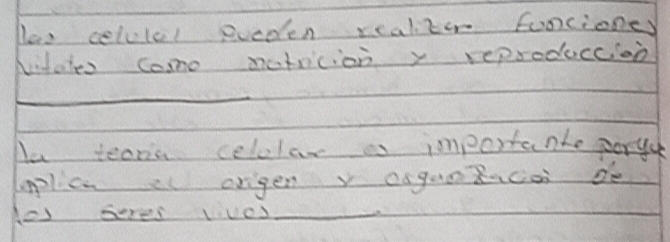 las celulal pueden realizar funciones
vitales como nutricion y reproduccion
la teoria celular es importante porque
aplica el origen y organizacion de
los seres vivos